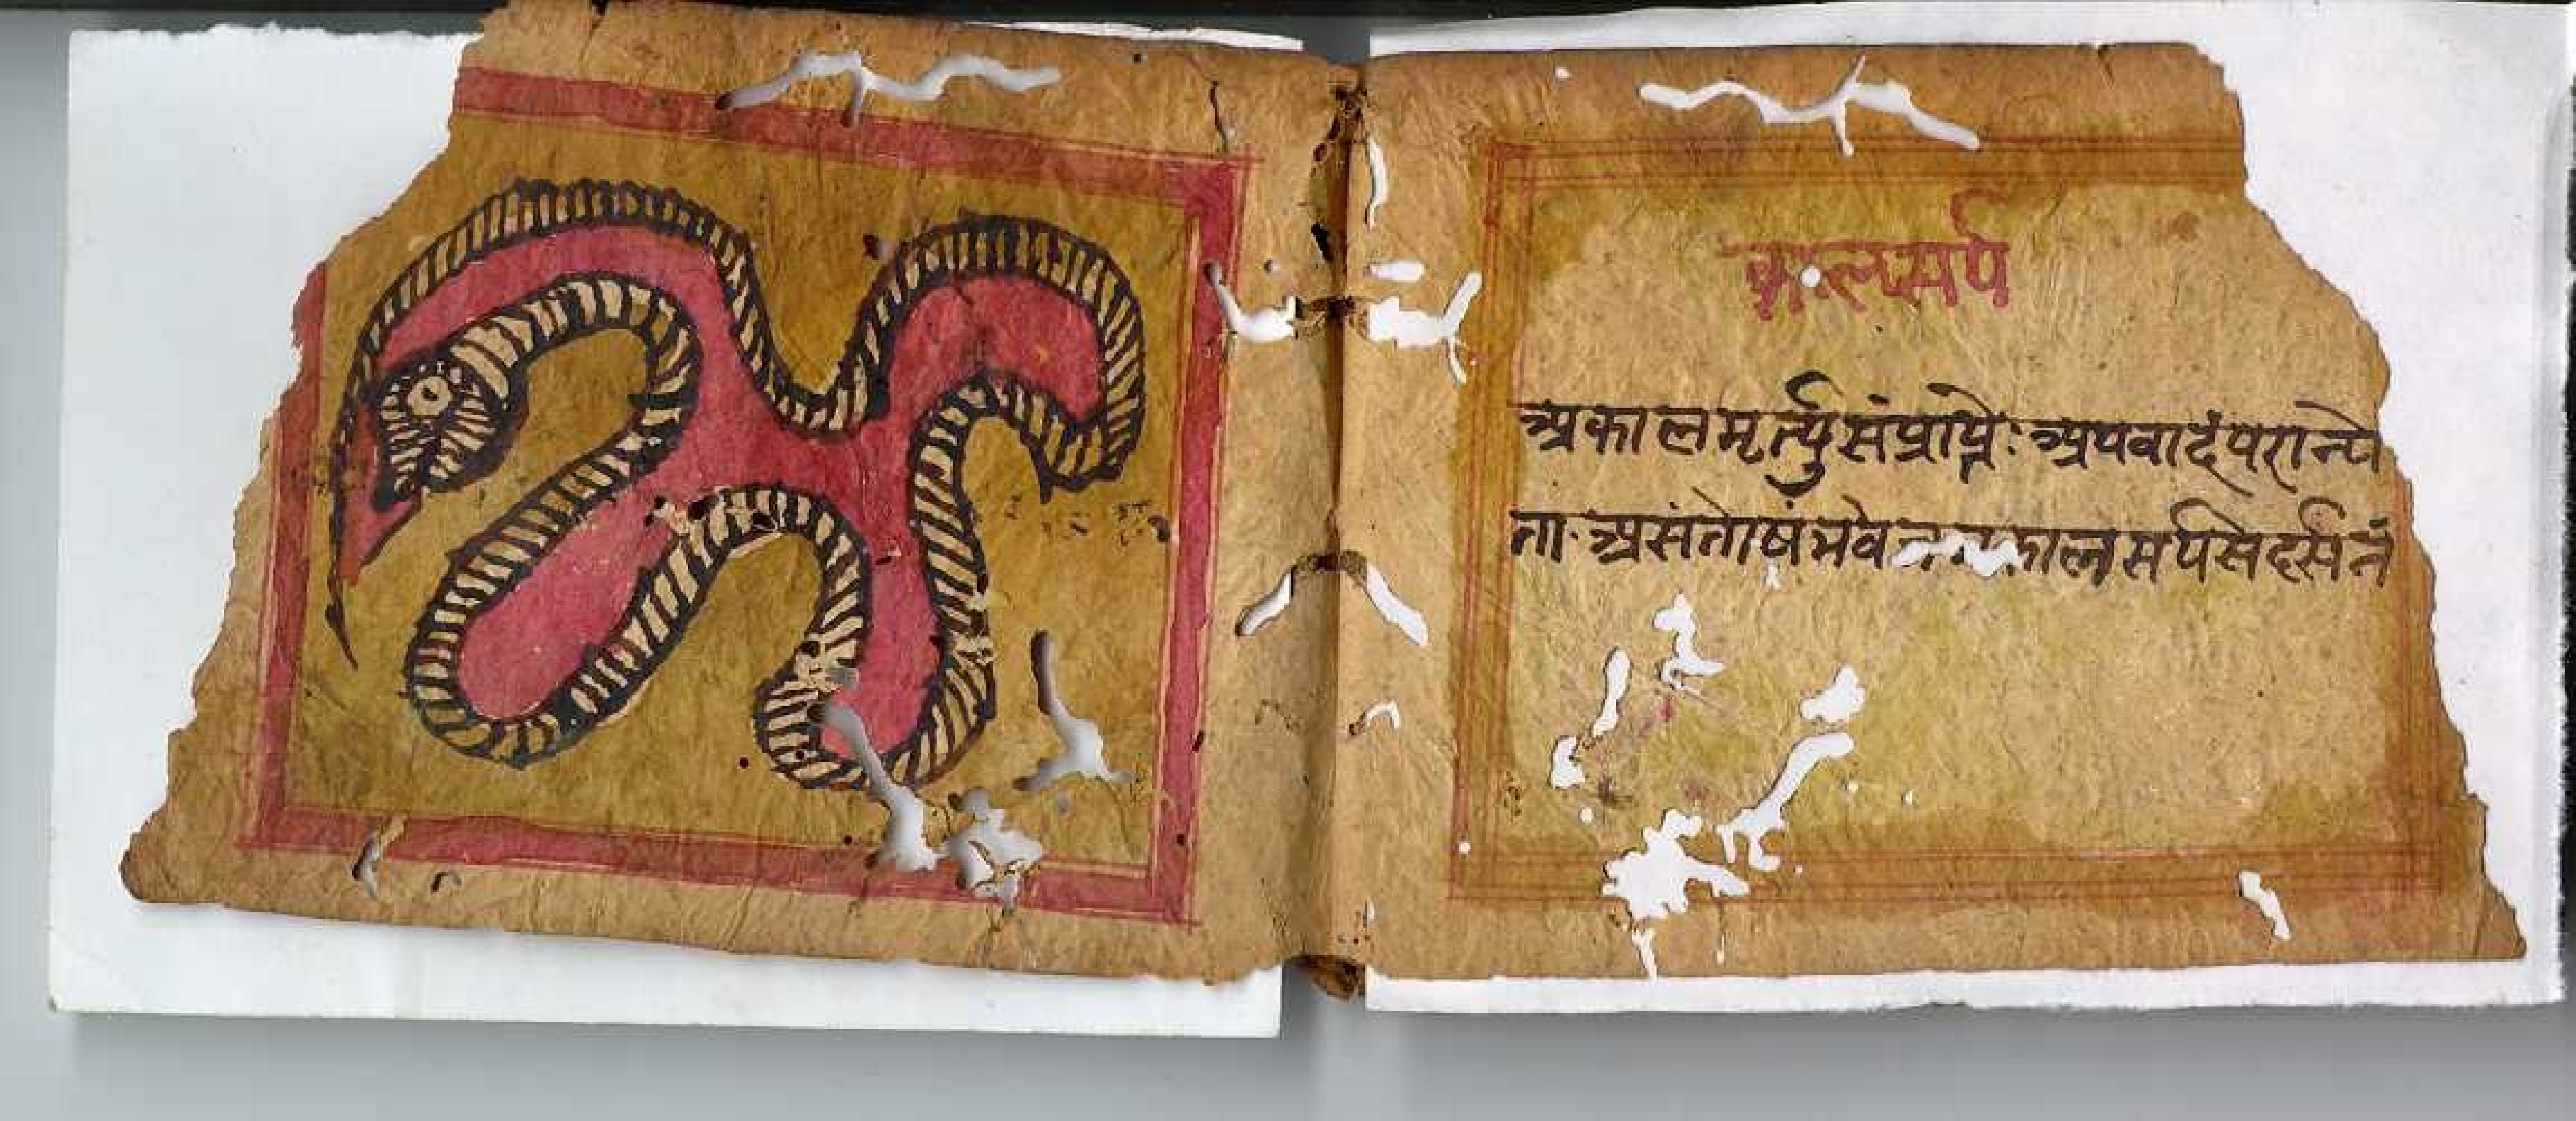 कालसर्प
अकालमृर्त्युसंप्राप्नेः अपवादंपरान्ये
ता. असंतोषंभवे कालसर्पसेदर्सनं